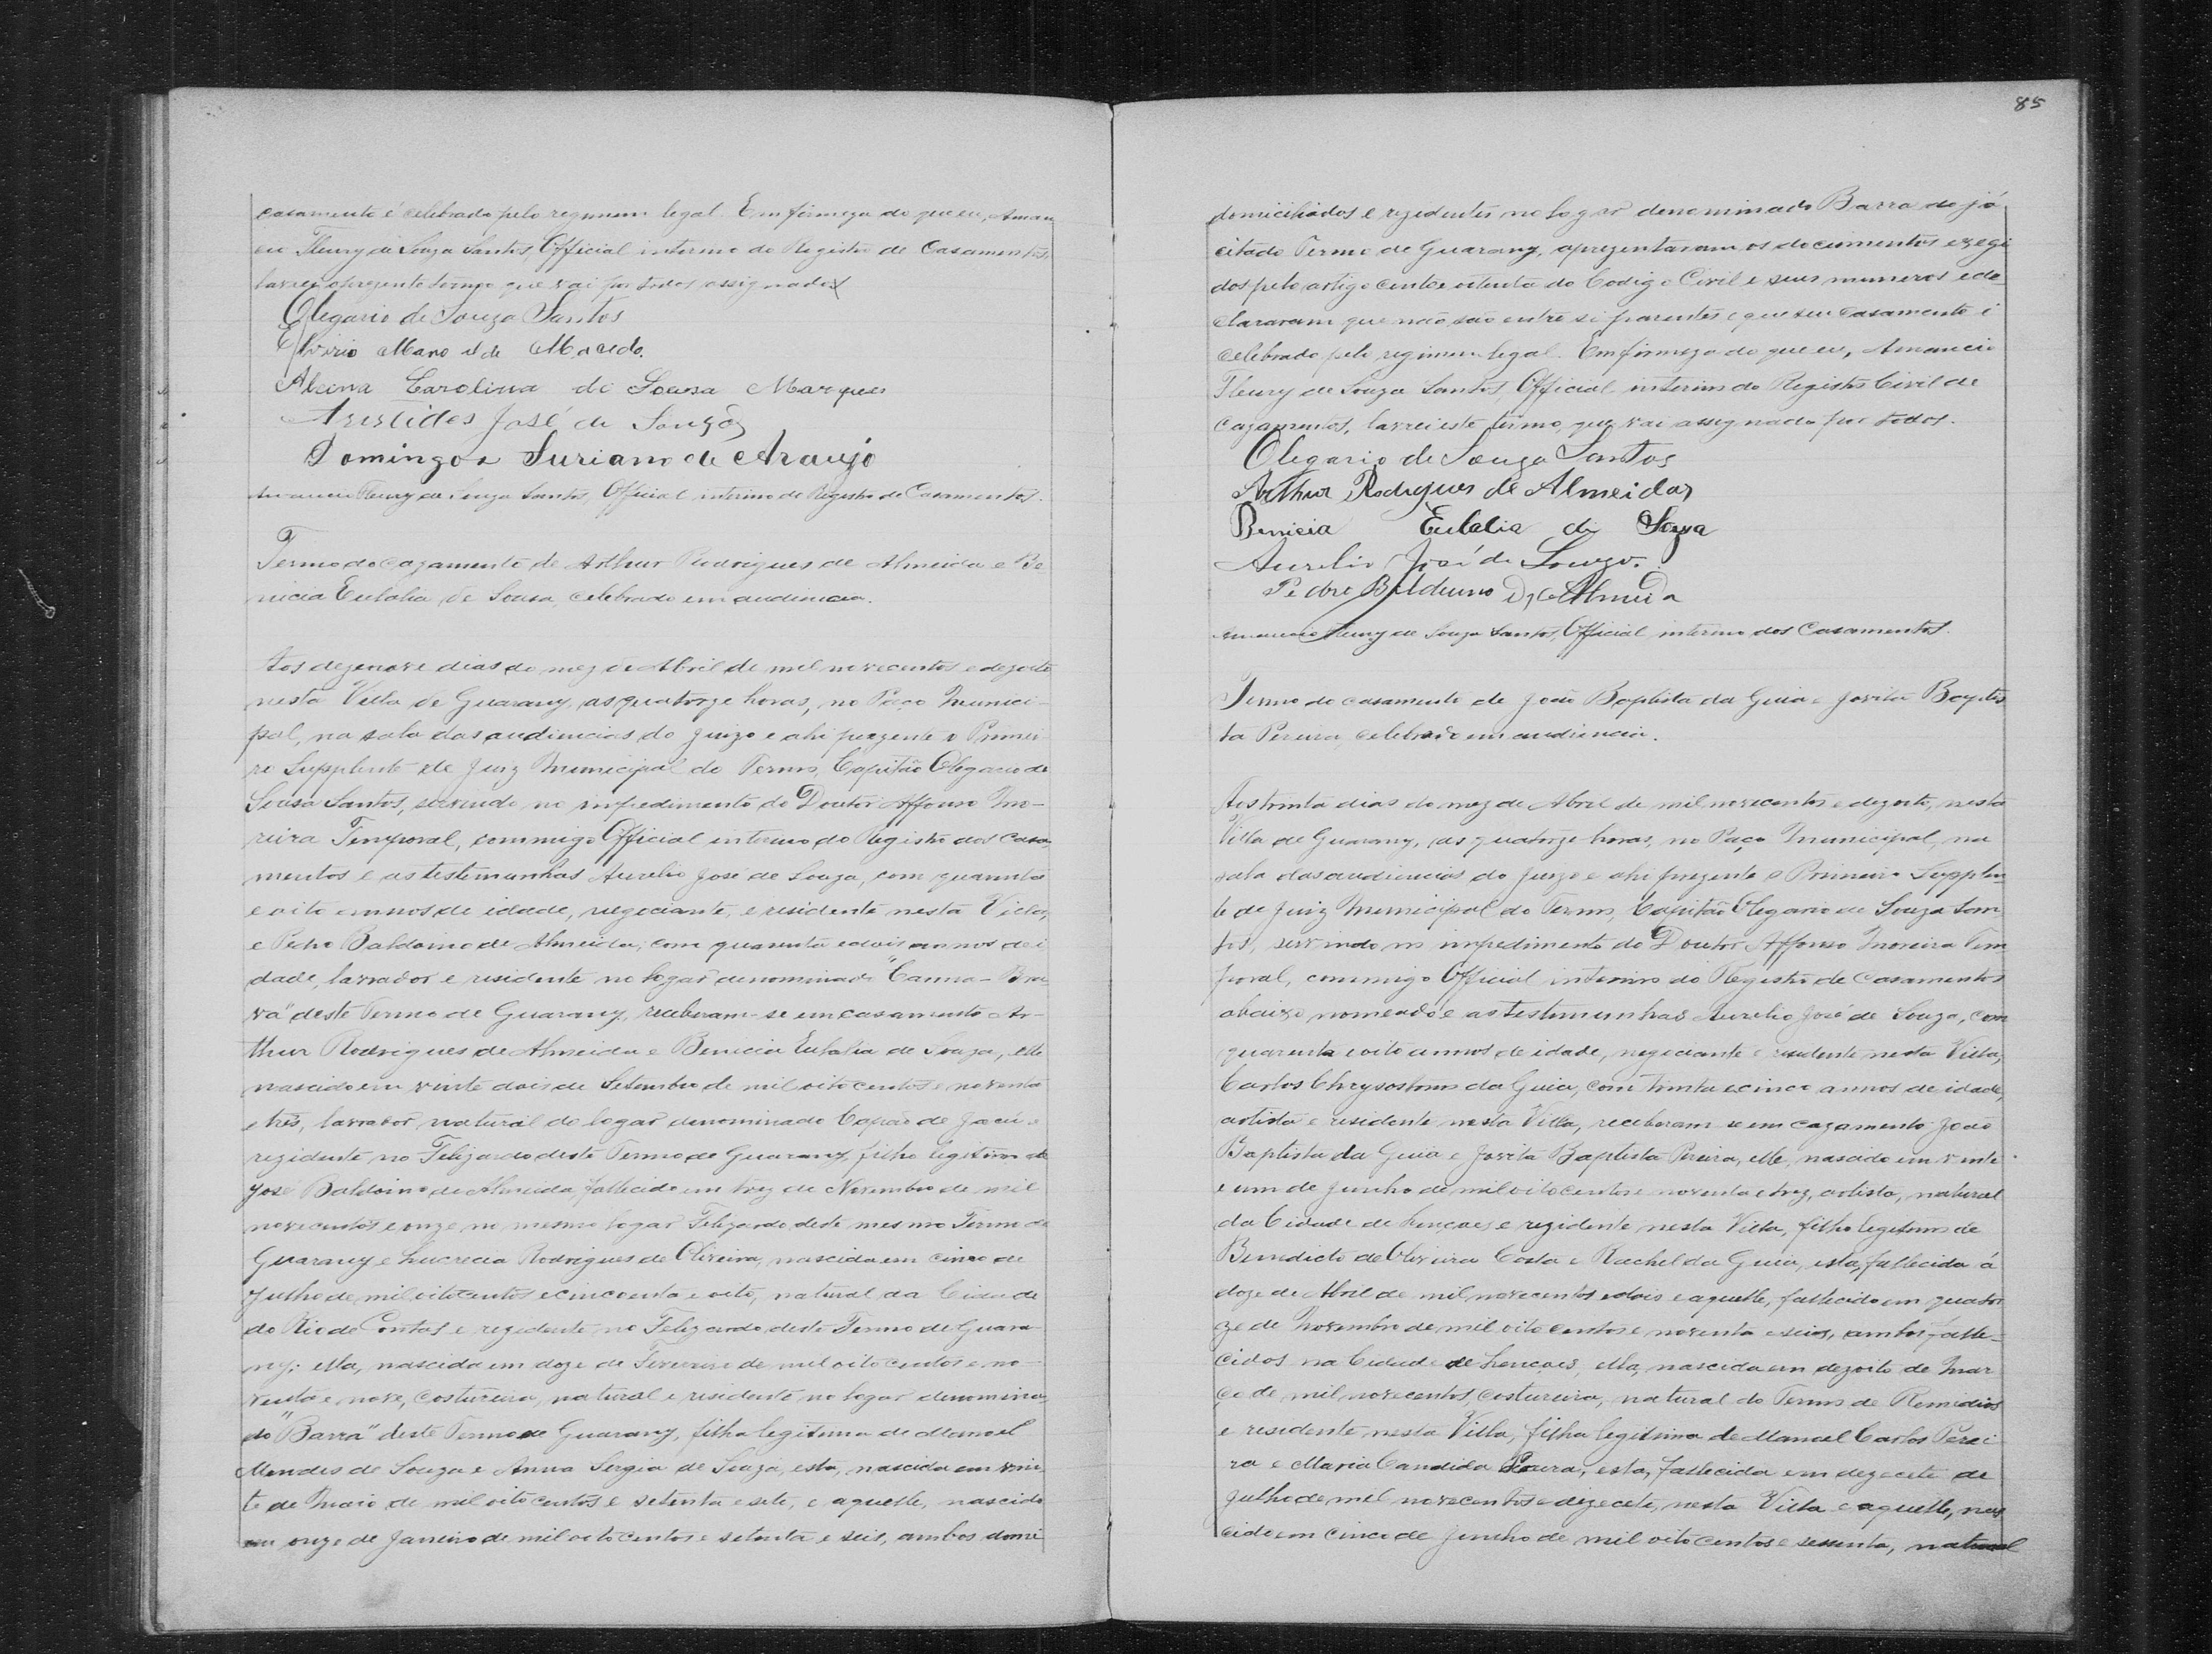 casamento é celebrado pelo regimem legal. Em firmeza do que eu, Aman
cio Fleury de Souza Santos, Official interino do Registro de Casamentos,
lavrei o prezente termo que vai por todos assignado
Olegario de Souza Santos
Manoel de Macedo.
Alcina Carolina de Sousa Marques
Aristides José de Souza
Domingos Suriano de Araujo
Amancio Fleury de Souza Santos, Official interino de Registro de Casamentos.
Termo do cazamento de Arthur Rodrigues de Almeida e Be
nicia Eulalia de Sousa, celebrado em audiencia.
Aos dezenove dias do mez de Abril de mil novecentos e dezoito
nesta Villa de Guarany, as quatorze horas, no Paço Munici-
pal, na sala das audiencias do juizo e ahi prezente o Primei
ro Supplente de Juiz Municipal do Termo, Capitão Olegario de
Sousa Santos, servindo no impedimento do Doutor Affonso Mo-
reira Temporal, commigo Official interino do Registro dos Casa
mentos e as testemunhas Aurelio José de Souza, com quarenta
e oito annos de idade, negociante, e residente nesta Villa,
e Pedro Baldoino de Almeida, com quarenta e dois annos de i
dade, lavrador e residente no logar denominado "Canna-Bra
va" deste Termo de Guarany, receberam-se em casamento Ar-
thur Rodrigues de Almeida e Benicia Eulalia de Souza, elle
nascido em vinte dois de Setembro de mil oitocentos e noventa
e três, lavrador, natural do logar denominado Capão de Jacú e
rezidente no Felizardo deste Termo de Guarany, filho legitimo de
José Baldoino de Almeida fallecido em trez de Novembro de mil
novecentos e onze, no mesmo logar Felizardo, deste mesmo Termo de
Guarany e Lucrecia Rodrigues de Oliveira, nascida em cinco de
Julho de mil oitocentos e cincoenta e oito, natural da Cidade
do Rio de Contas e rezidente no Felizardo deste Termo de Guara
ny; ella, nascida em doze de Fevereiro de mil oitocentos e no-
venta e nove, costureira, natural e residente no logar denomina
do "Barra" deste Termo de Guarany, filha legitima de Manoel
Mendes de Souza e Anna Sergia de Souza, esta, nascida em vin
te de Maio de mil oitocentos e setenta e sete, e aquelle, nascido
em onze de Janeiro de mil oitocentos e setenta e seis, ambos domi
85
domiciliados e rezidentes no logar denominado Barra do já
citado Termo de Guarany, aprezentaram os documentos exegi
dos pelo artigo cento e oitenta do Codigo Civil e seus numeros e de
clararam que não são entre si parentes e que seu casamento é
celebrado pelo regimem legal. Em firmeza do que eu, Amancio
Fleury de Souza Santos, Official interino do Registro Civil de
Cazamentos, lavrei este termo, que vai assignado por todos.
Olegario de Souza Santos
Arthur Rodrigues de Almeida
Benicia Eulalia de Souza
Aurelio José de Souza.
Pedro Balduino de Almeida
Amancio Fleury de Souza Santos, Official interino dos Casamentos.
Termo do casamento de João Baptista da Guia e Jovita Baptis
ta Pereira, celebrado em audiencia.
Aos trinta dias do mez de Abril de mil novecentos e dezoito, nesta
Villa de Guarany, as quatorze horas, no Paço Municipal, na
sala das audiencias do juizo e ahi prezente o Primeiro Supplen
te de Juiz Municipal do Termo, Capitão Olegario de Souza San
tos, servindo no impedimento do Doutor Affonso Moreira Tem
poral, commigo Official interino do Registro de Casamentos
abaixo nomeado e as testemunhas Aurelio José de Souza, com
quarenta e oito annos de idade, negociante e residente nesta Villa,
Carlos Chrysostomo da Guia, com trinta e cinco annos de idade,
artista e residente nesta Villa, receberam se em cazamento João
Baptista da Guia e Jovita Baptista Pereira, elle, nascido em vinte
e um de Junho de mil oitocentos e noventa e trez, artista, natural
da Cidade de Lençoes e rezidente nesta Villa, filho legitimo de
Benedicto de Oliveira Costa e Rachel da Guia, esta, fallecida á
doze de Abril de mil novecentos e dois e aquelle, fallecido em quator
ze de Novembro de mil oitocentos e noventa e seis, ambos falle-
cidos na Cidade de Lençoes, ella, nascida em dezoito de Mar
ço de mil novecentos, costureira, natural do Termo de Remedios
e residente nesta Villa, filha legitima de Manoel Carlos Perei
ra e Maria Candida Pereira, esta, fallecida em dezecete de
Julho de mil novecentos e dezecete, nesta Villa e aquelle, nas
cido em cinco de Junho de mil oitocentos e sessenta, natural